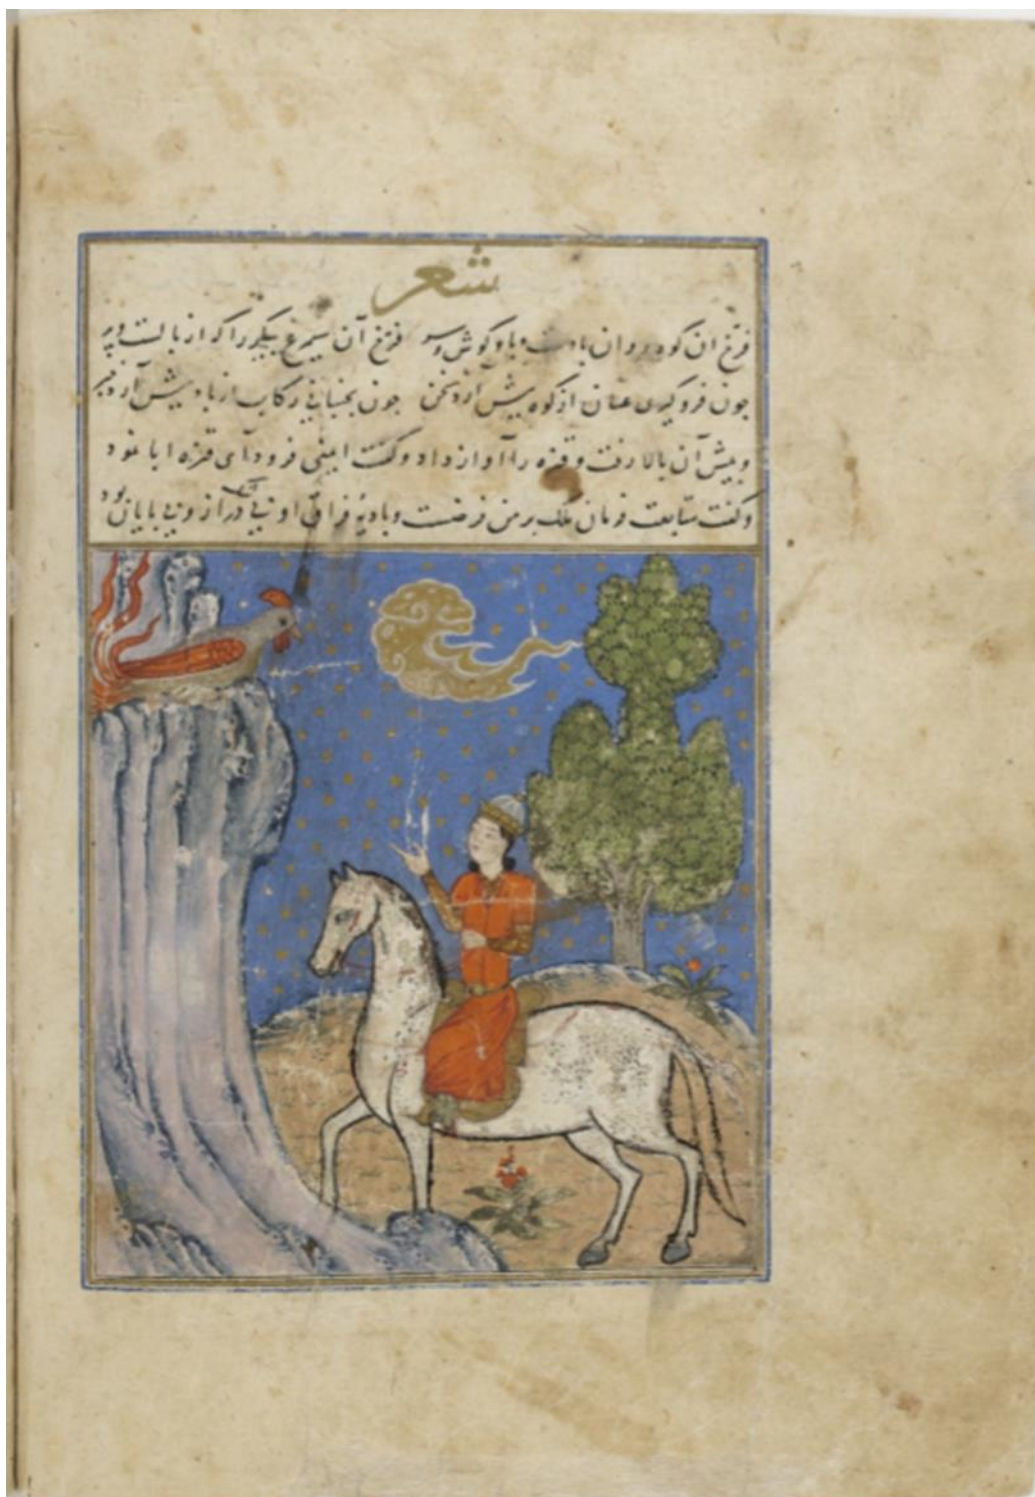 شعر
فرخ ان کوه روان وبا وکوش وسر فرخ آن سیمرغ پیکر را که از بالست وپر
جون فرو کیری عنان از کوه بیش آرد جون بجنبانی رکاب از باد بیش آرد
وبیش آن بالا رفت وقنزه را آواز داد وکفت ایمنی فرود آی قنزه ابا نمود
وکفت متابعت فرمان ملک بر من فرضست وبادیهٔ فراق او بی دراز وبی پایان بود